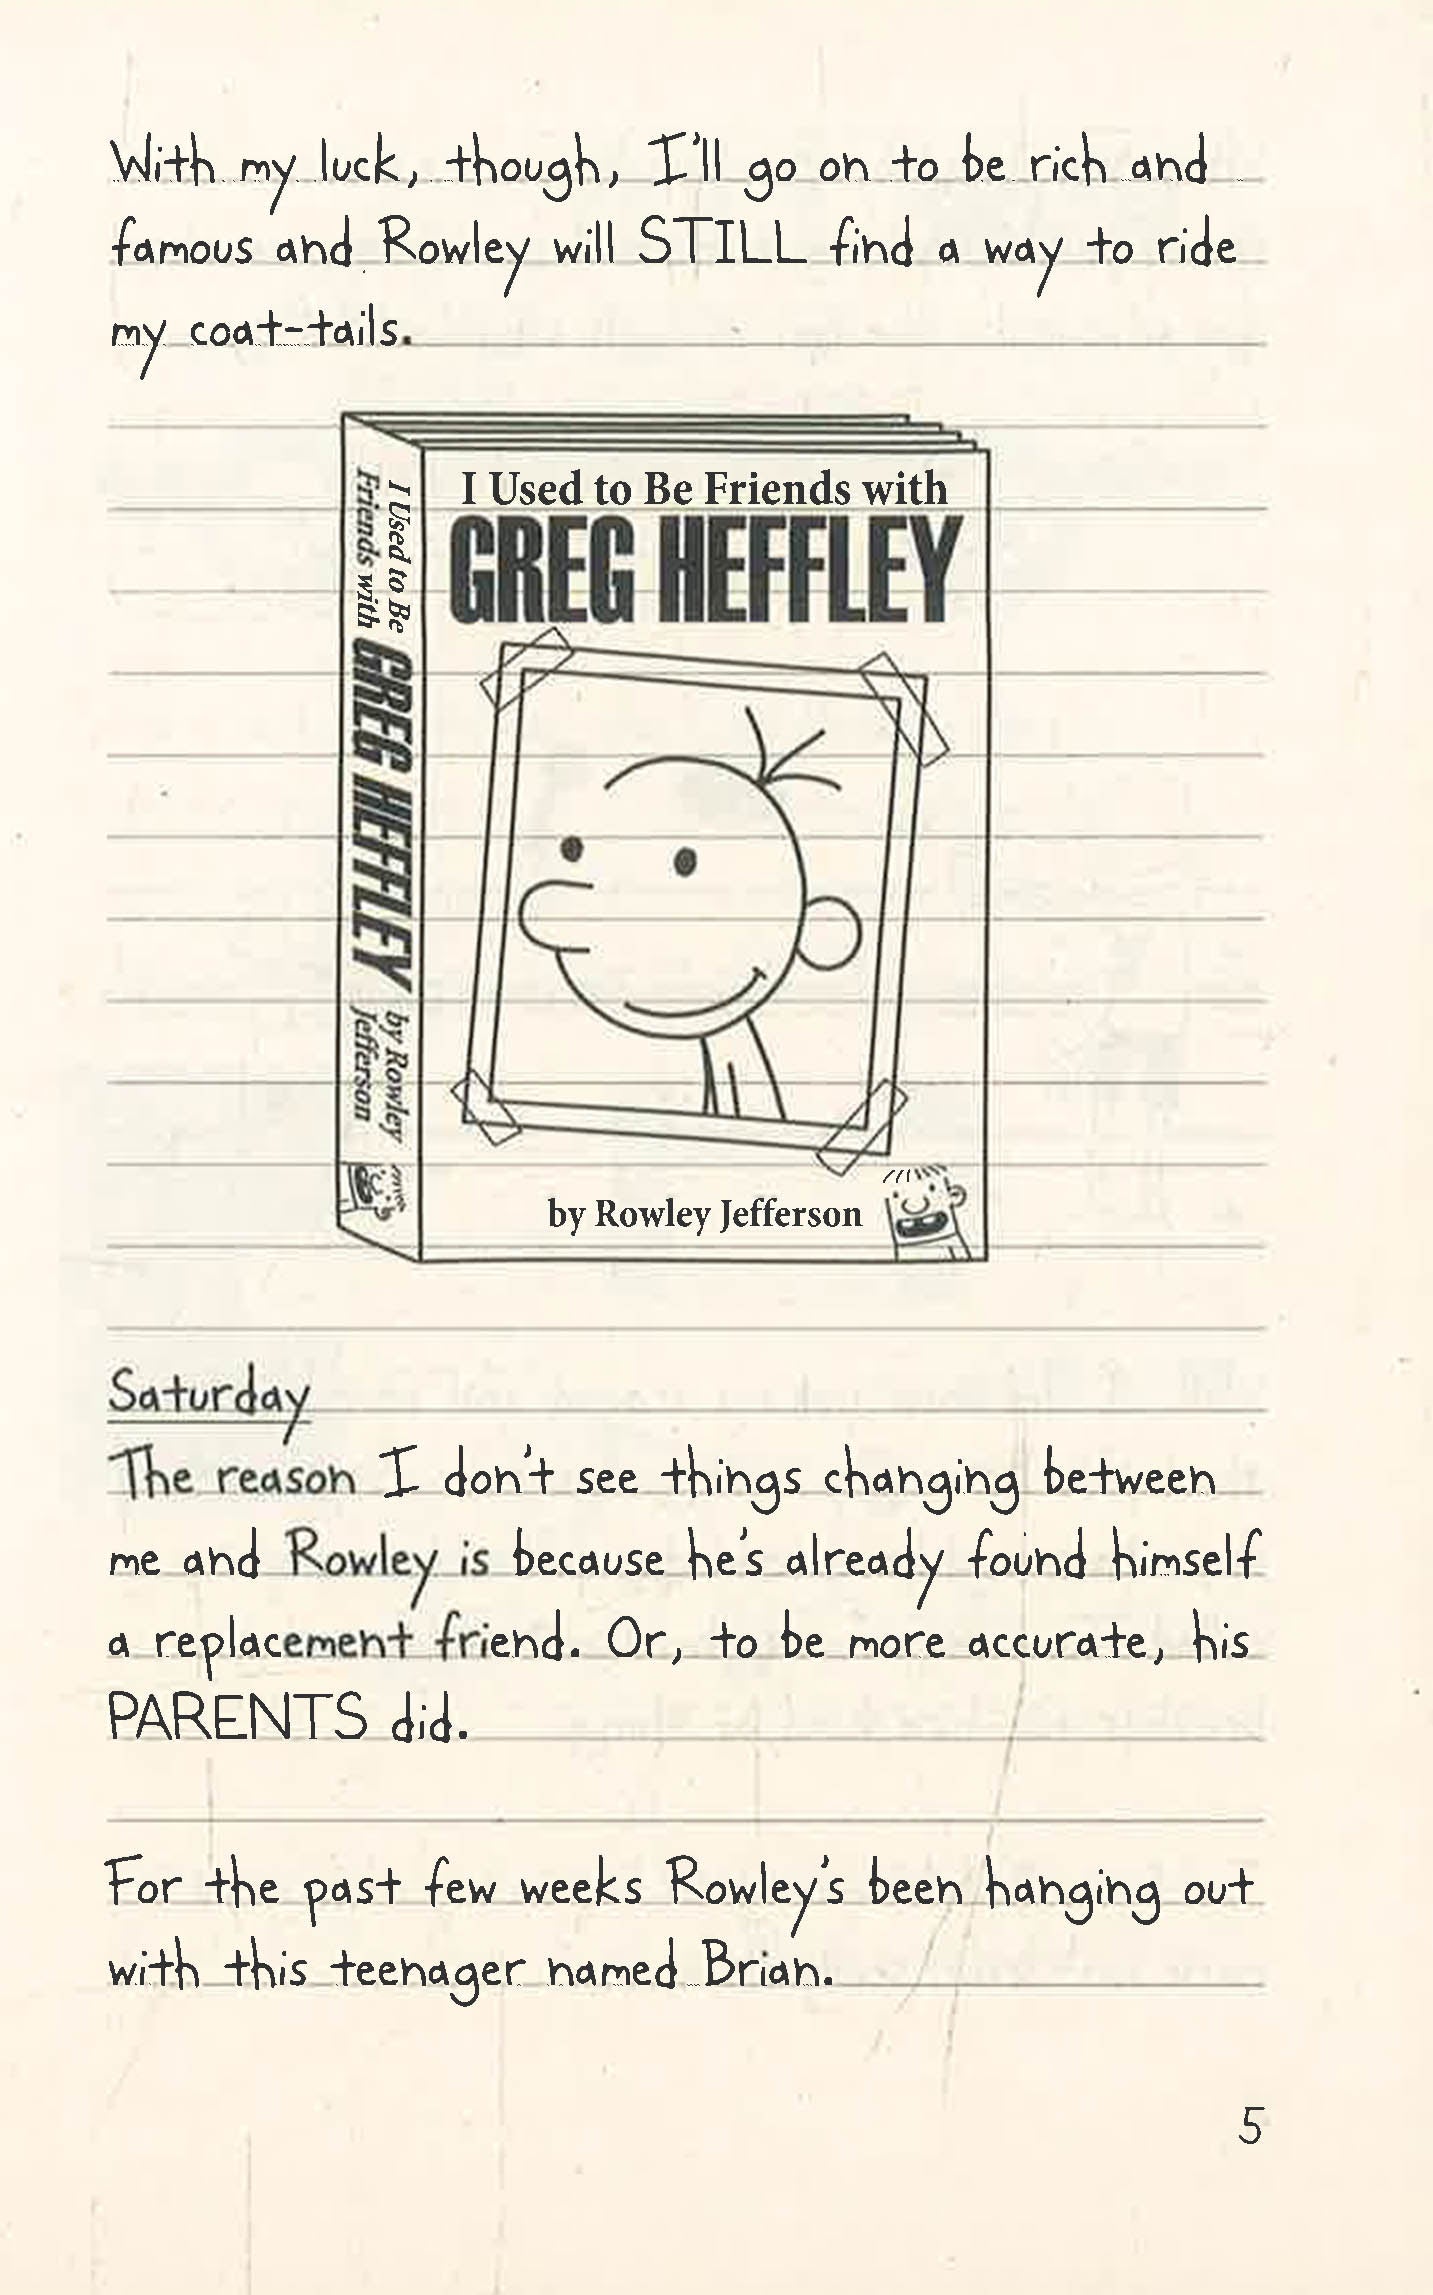 With my luck, though, I'll go on to be rich and
famous and Rowley will STILL find a way to ride
my coat-tails.
I Used to Be Friends with
GREG HEFFLEY
I Used to Be
Friends with
GREG HEFFLEY
by Rowley
Jefferson
by Rowley Jefferson
Saturday
The reason I don't see things changing between
me and Rowley is because he's already found himself
a replacement friend. Or, to be more accurate, his
PARENTS did.
For the past few weeks Rowley's been hanging out
with this teenager named Brian.
5